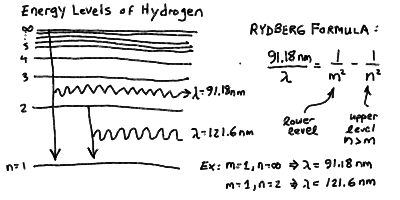 Energy Levels of Hydrogen
∞
5
4
3
2
n=1
λ=91.18nm
λ=121.6nm
RYDBERG FORMULA:
91.18nm/λ = 1/m² - 1/n²
lower level
upper level n>m
Ex: m=1, n=∞ ⇒ λ= 91.18nm
m=1, n=2 ⇒ λ= 121.6nm